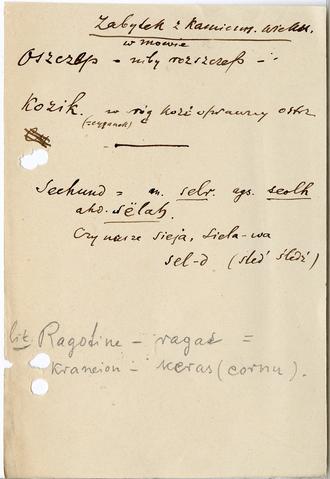 Zabytek z kamienn. wieku
w mowie
Oszczep - niby rozszczep -
Kozik. w róg kozi oprawny ostrz
(=cyganek)
Seehund = m. selr. ags. seolh
ahd. sëlah.
Czy nasze sieja, siela-wa
sel-d (sled' śledź)
lit. Ragotine - ragas =
kraneion - keras (cornu).